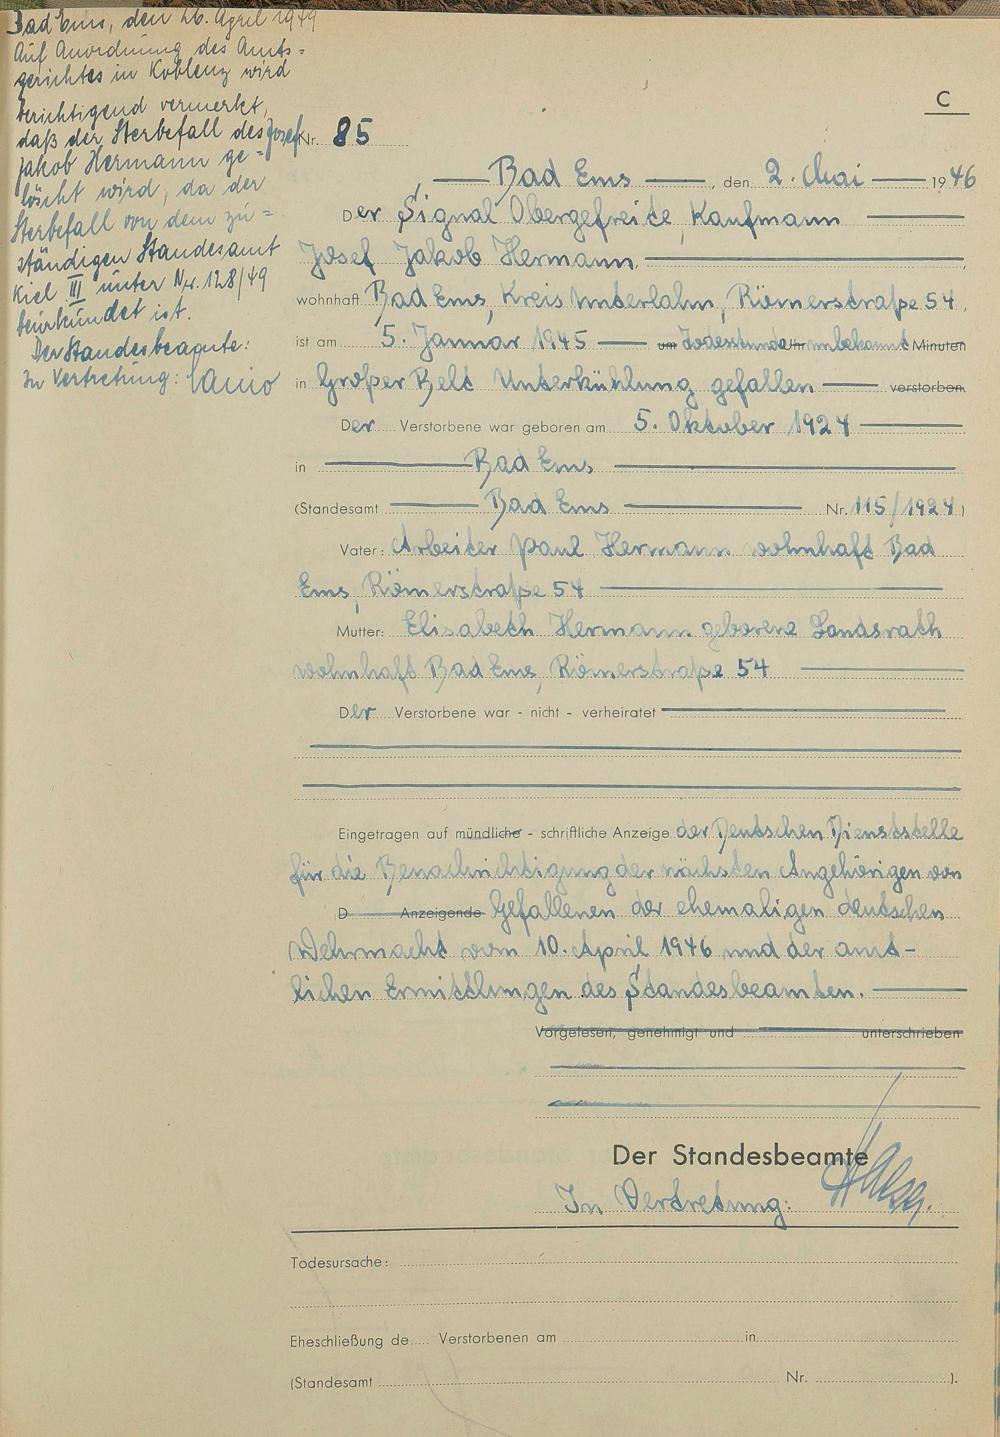 Bad Ems, den 26. April 1949
Auf Anordnung des Amts=
gerichtes in Koblenz wird
berichtigend vermerkt,
daß der Sterbefall des Josef
Jakob Hermann ge=
löscht wird, da der
Sterbefall von dem zu=
ständigen Standesamt
Kiel III unter Nr. 128/49
beurkundet ist.
Der Standesbeamte:
In Vertretung:
C
Nr. 85
Bad Ems, den 2. Mai 1946
Der Signal Obergefreite, Kaufmann
Josef Jakob Hermann,
wohnhaft Bad Ems, Kreis Unterlahn, Römerstraße 54
ist am 5. Januar 1945 um Todesstunde Uhr unbekannt Minuten
in Großer Belt Unterkühlung gefallen verstorben.
Der Verstorbene war geboren am 5. Oktober 1924
in Bad Ems
(Standesamt Bad Ems Nr. 115/1924)
Vater: Arbeiter Paul Hermann wohnhaft Bad
Ems, Römerstraße 54
Mutter: Elisabeth Hermann geborene Landsrath
wohnhaft Bad Ems, Römerstraße 54
Der Verstorbene war - nicht - verheiratet
Eingetragen auf mündliche - schriftliche Anzeige der Deutschen Dienststelle
für die Benachrichtigung der nächsten Angehörigen von
D Anzeigende Gefallenen der ehemaligen deutschen
Wehrmacht vom 10. April 1946 und der amt-
lichen Ermittlungen des Standesbeamten.
Vorgelesen, genehmigt und unterschrieben
Der Standesbeamte
In Vertretung:
Todesursache:
Eheschließung de Verstorbenen am in
(Standesamt Nr. ).